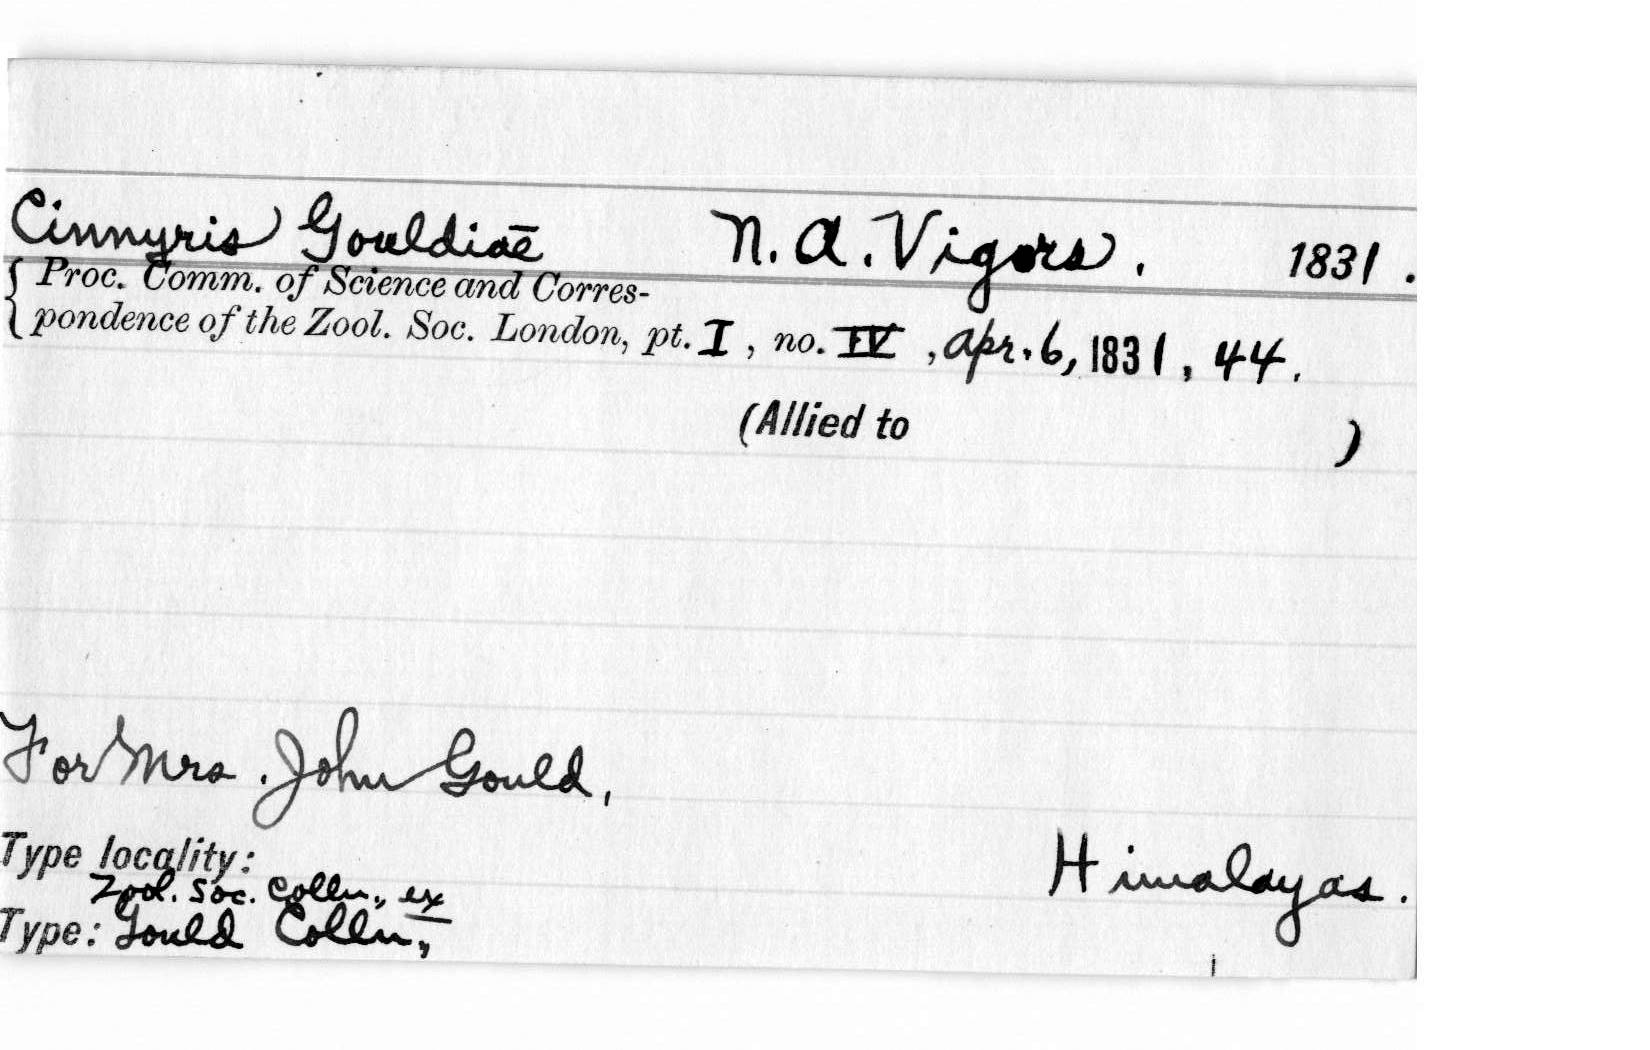 Cinnyris Gouldiae N. A. Vigors. 1831.
Proc. Comm. of Science and Corres-
pondence of the Zool. Soc. London, pt. I, no. IV, Apr. 6, 1831, 44.
(Allied to )
For Mrs. John Gould,
Type locality: Himalayas.
Zool. Soc. Colln., ex
Type: Gould Colln.,